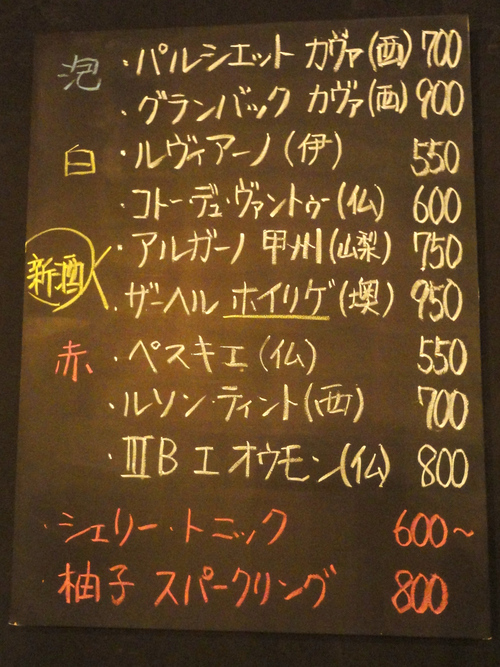 泡 ・パルシエット カヴァ(西) 700
・グランバック カヴァ(西) 900
白 ・ルヴィアーノ(伊) 550
・コトー・デュ・ヴァントゥー(仏) 600
新酒 ・アルガーノ 甲州(山梨) 750
・ザーヘル ホイリゲ(墺) 950
赤 ・ペスキエ(仏) 550
・ルソン・ティント(西) 700
・ⅢB エ オウモン(仏) 800
・シェリー・トニック 600〜
・柚子 スパークリング 800